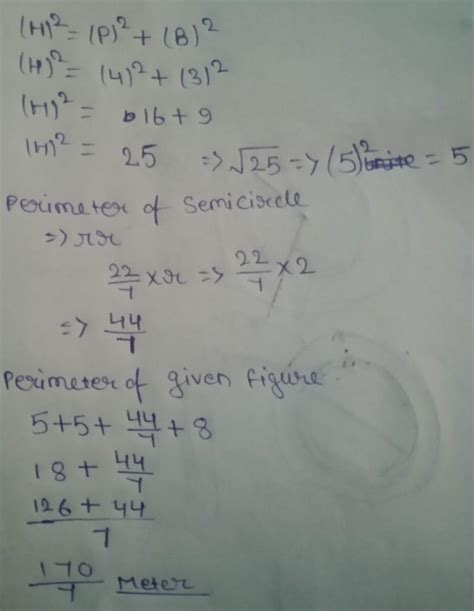 (H)² = (P)² + (B)²
(H)² = (4)² + (3)²
(H)² = 16 + 9
(H)² = 25 => √25 => (5)² = 5
Perimeter of Semicircle
=> πr
22/7 × r => 22/7 × 2
=> 44/7
Perimeter of given figure.
5+5+ 44/7 + 8
18 + 44/7
126 + 44 / 7
170/7 Meter